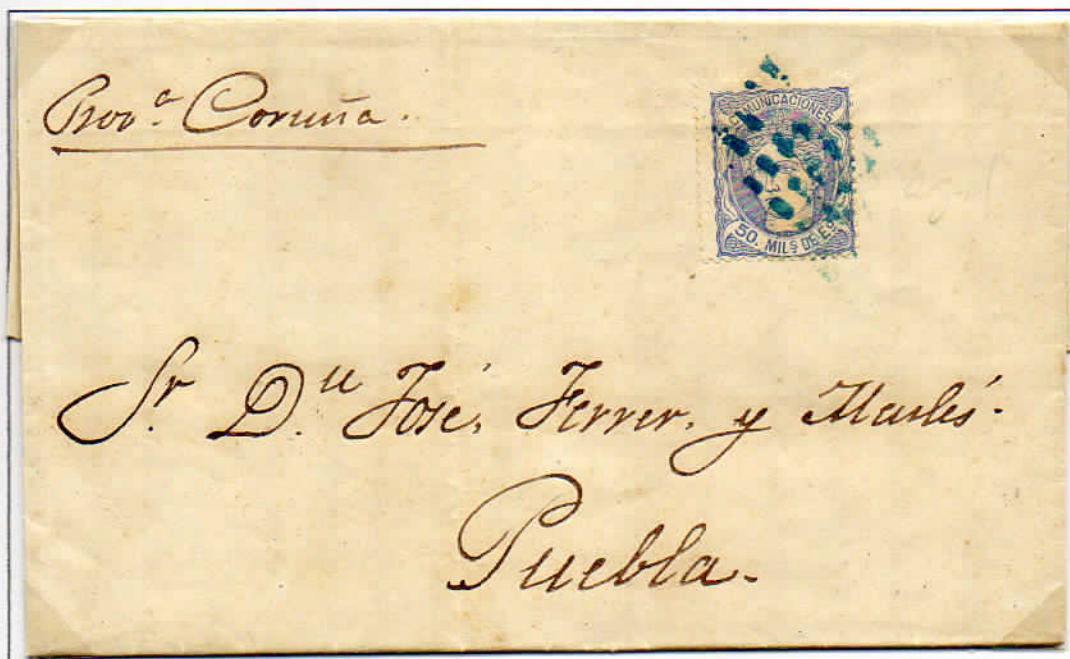 Prov.ª Coruña.
COMUNICACIONES
50. MILS DE ES
Sr. D.n José, Ferrer, y Marlés.
Puebla.